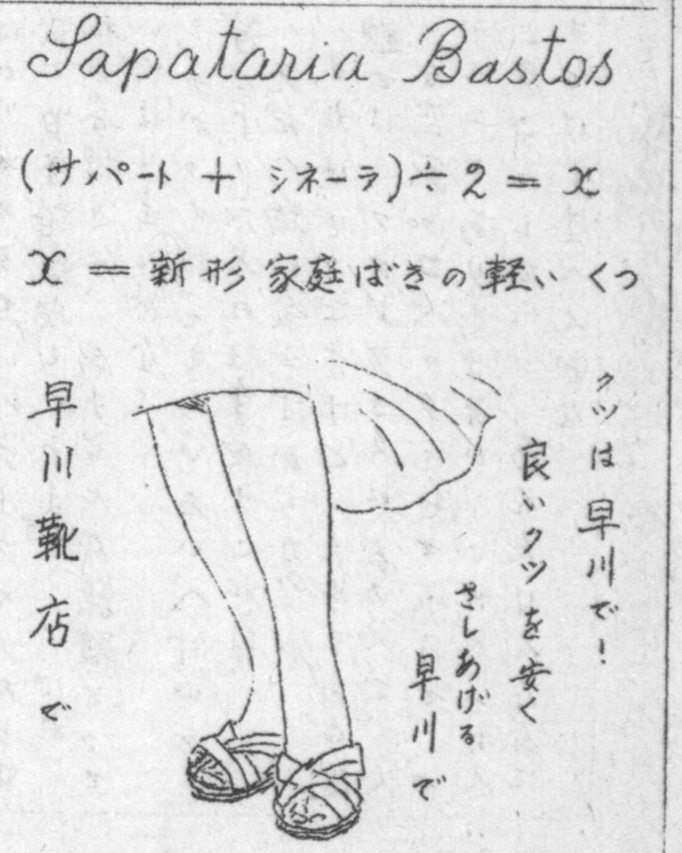 Sapataria Bastos
(サパート + シネーラ)÷2 = x
x = 新形 家庭ばきの軽い くつ
クツは早川で!
良いクツを安く
さしあげる
早川で
早川靴店で